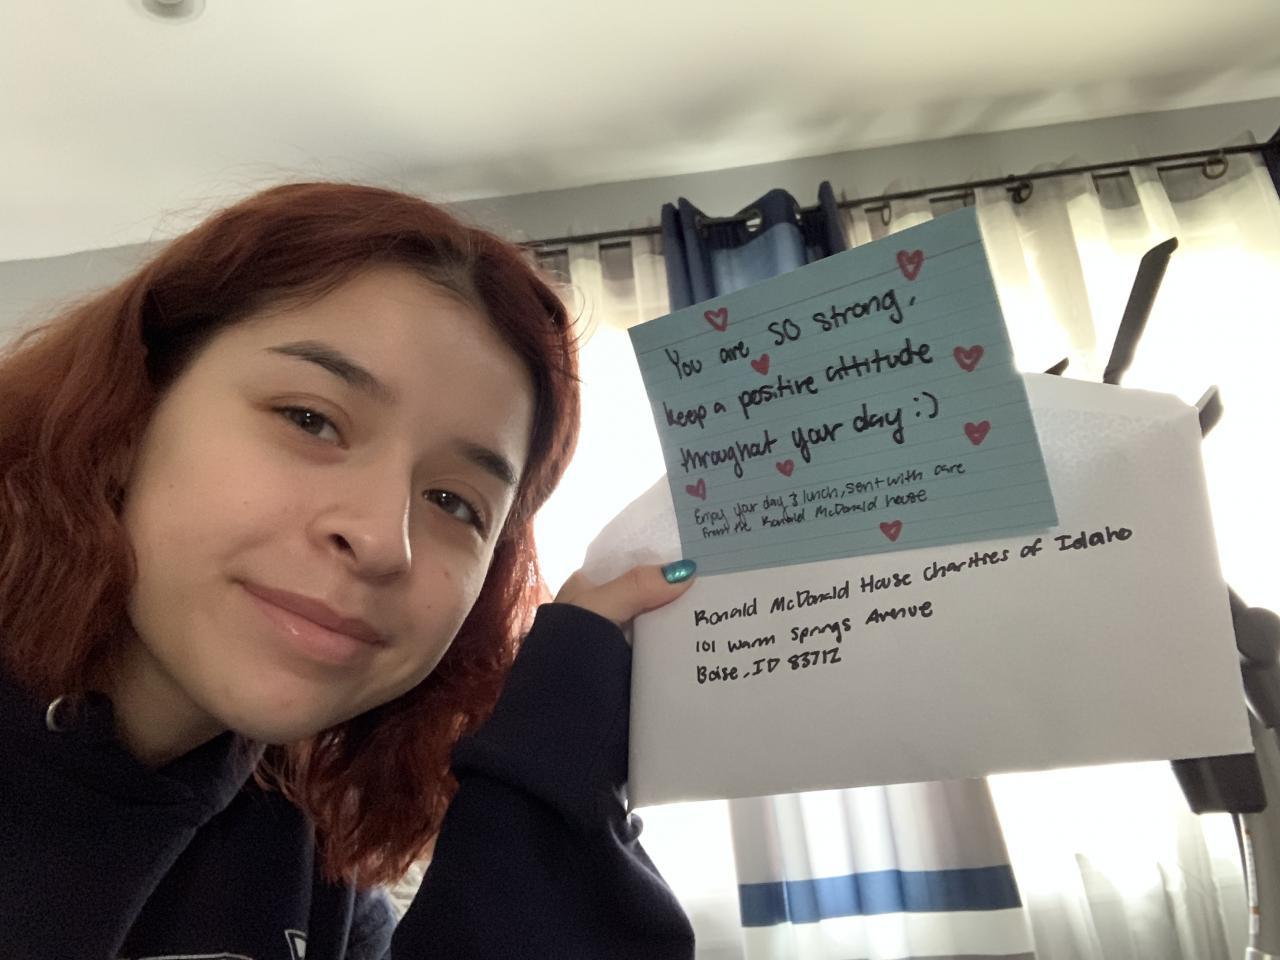 You are SO strong,
keep a positive attitude
throughout your day :)
Enjoy your day & lunch, sent with care
from the Ronald McDonald house
Ronald McDonald House Charities of Idaho
101 Warm Springs Avenue
Boise, ID 83712